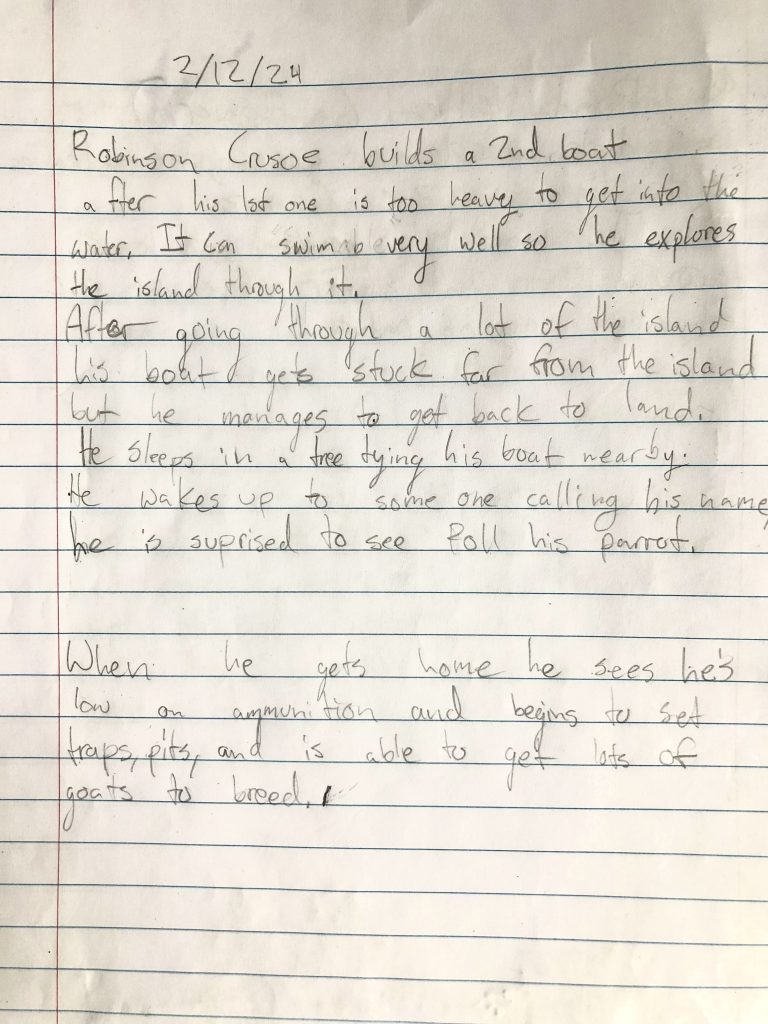 2/12/24
Robinson Crusoe builds a 2nd boat
after his 1st one is too heavy to get into the
water. It can swim very well so he explores
the island through it.
After going through a lot of the island
his boat gets stuck far from the island
but he manages to get back to land.
He sleeps in a tree tying his boat nearby.
He wakes up to some one calling his name,
he is suprised to see Poll his parrot.
When he gets home he sees he's
low on ammunition and begins to set
traps, pits, and is able to get lots of
goats to breed.